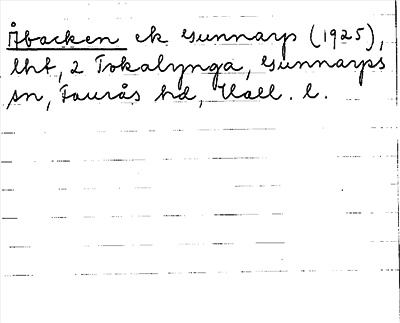 Åbacken ek Gunnarp (1925),
lht, 2 Tokalynga, Gunnarps
sn, Faurås hd, Hall. l.